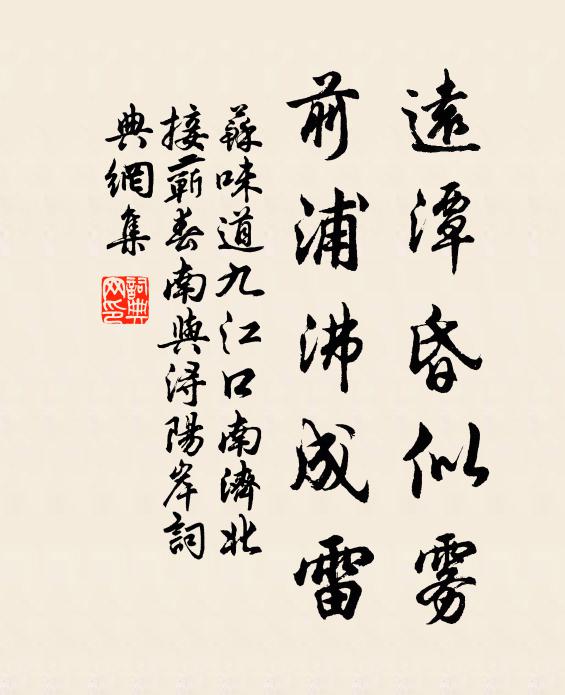 遠潭昏似霧
前浦沸成雷
蘇味道九江口南濟北
接蘄春南與潯陽岸詞
典網集
詞典网印